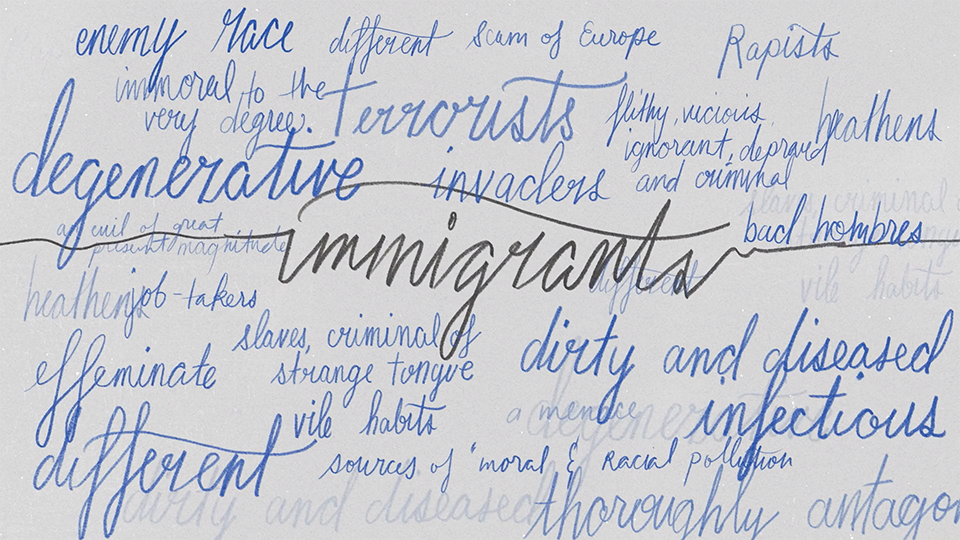 enemy race different Scum of Europe Rapists
immoral to the
very degree. Terrorists filthy, vicious, heathens
ignorant, depraved
degenerative invaders and criminal
slaves, criminal o
an evil of great
present magnitude immigrants bad hombres
different vile habits
heathens job-takers
slaves, criminal of
strange tongue dirty and diseased
effeminate
vile habits a menace infectious
degenerative
different sources of "moral & Racial pollution
dirty and diseased thoroughly antagon